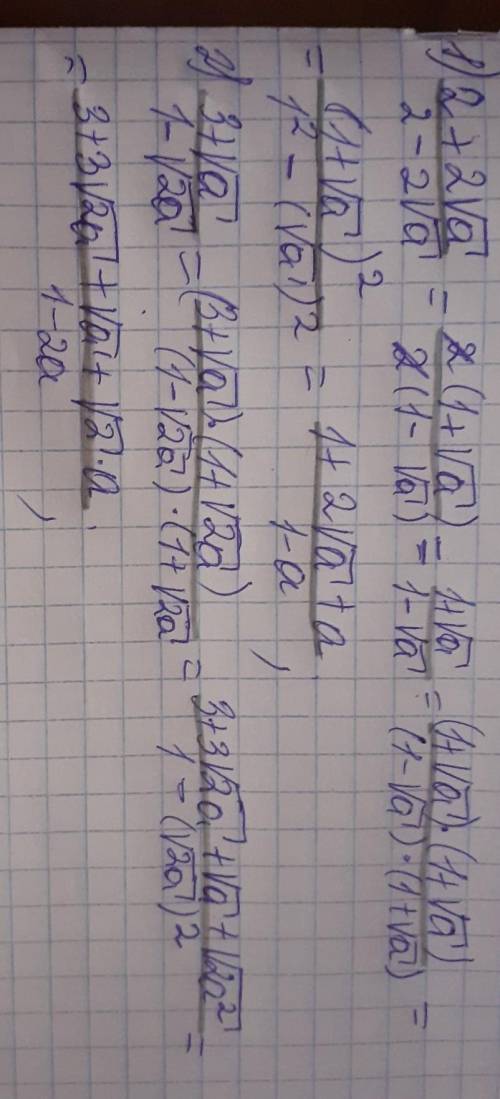 1) (2+2√a)/(2-2√a) = (2(1+√a))/(2(1-√a)) = (1+√a)/(1-√a) = ((1+√a)·(1+√a))/((1-√a)·(1+√a)) =
= (1+√a)²/(1²-(√a)²) = (1+2√a+a)/(1-a),
2) (3+√a)/(1-√2a) = ((3+√a)·(1+√2a))/((1-√2a)·(1+√2a)) = (3+3√2a+√a+√2a²)/(1-(√2a)²) =
= (3+3√2a+√a+√2·a)/(1-2a),